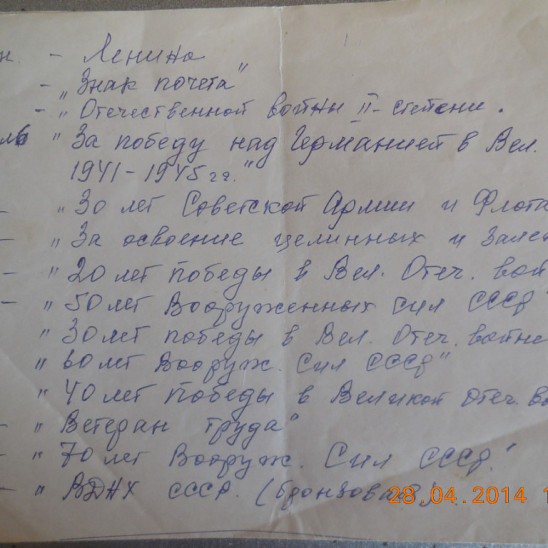 н. - Ленина
- „Знак почета"
- „Отечественной войны II-степени.
ль „За победу над Германией в Вел.
1941-1945 гг."
- „30 лет Советской Армии и Флота
- „За освоение целинных и
- „20 лет победы в Вел. Отеч.
- „50 лет Вооруженных Сил СССР"
„30 лет победы в Вел. Отеч. войне
„60 лет Вооруж. Сил СССР"
„40 лет победы в Великой Отеч
- „Ветеран труда"
- „70 лет Вооруж. Сил СССР."
- „ВДНХ СССР. (бронзовая).
28.04.2014 1